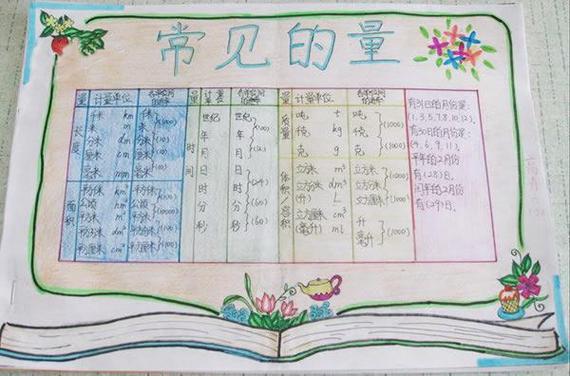 常见的量
量 计量单位 各单位间的进率
长度
千米 km 千米 (1000)
米 m 米 (10)
分米 dm 分米 (10)
厘米 cm 厘米 (10)
毫米 mm 毫米
面积
平方千米 km² 平方千米 (100)
公顷 hm² 公顷 (10000)
平方米 m² 平方米 (100)
平方分米 dm² 平方分米 (100)
平方厘米 cm² 平方厘米
量 计量 各单位间的进率
时间
世纪 世纪 (100)
年 年 (12)
月 月
日 日 (24)
时 时 (60)
分 分 (60)
秒 秒
量 计量单位 各单位间的进率
质量
吨 t 吨 (1000)
千克 kg 千克 (1000)
克 g 克
体积/容积
立方米 m³ 立方米 (1000)
立方分米 dm³ 立方分米 (1000)
(升) L
立方厘米 cm³ 立方厘米
(毫升) ml
升 (1000)
毫升
有31日的月份是:
(1,3,5,7,8,10,12).
有30日的月份是:
(4,6,9,11).
平年的2月份
有(28)日.
闰年的2月份
有(29)日.